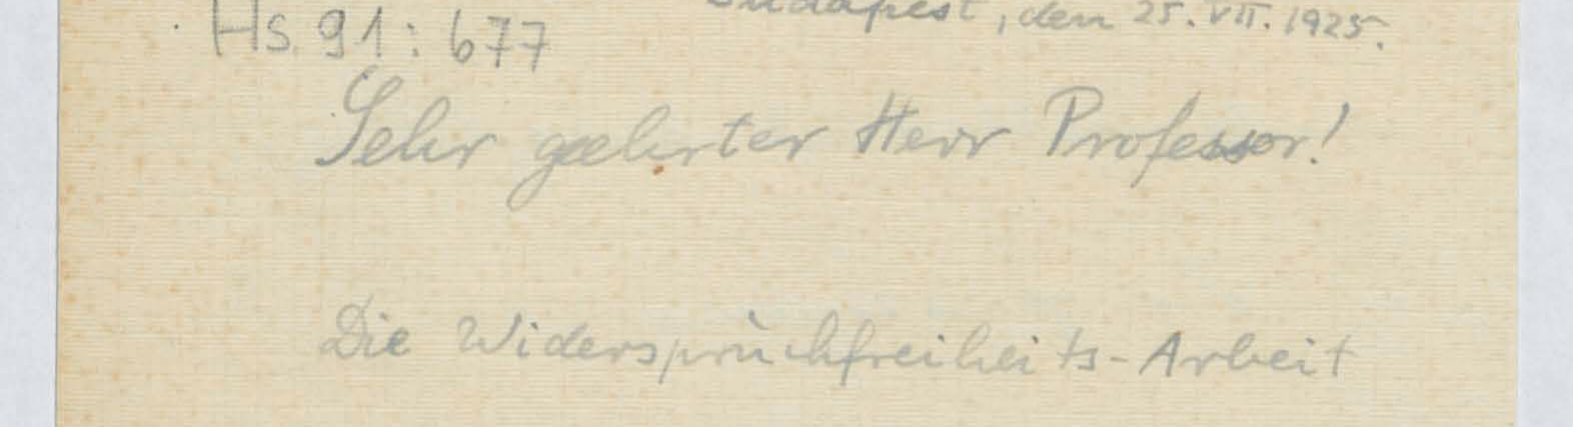 Budapest, den 25. VII. 1925.
Hs. 91: 677
Sehr geehrter Herr Professor!
Die Widerspruchfreiheits-Arbeit